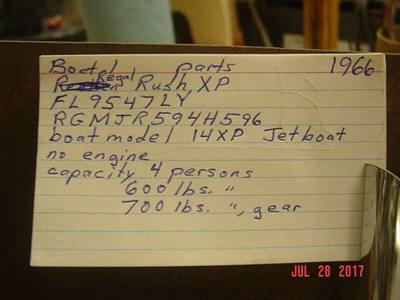 Boat parts 1966
Regal Rush, XP
FL9547LY
RGMJR594H596
boat model 14XP Jetboat
no engine
capacity 4 persons
600 lbs. "
700 lbs. ", gear
JUL 28 2017